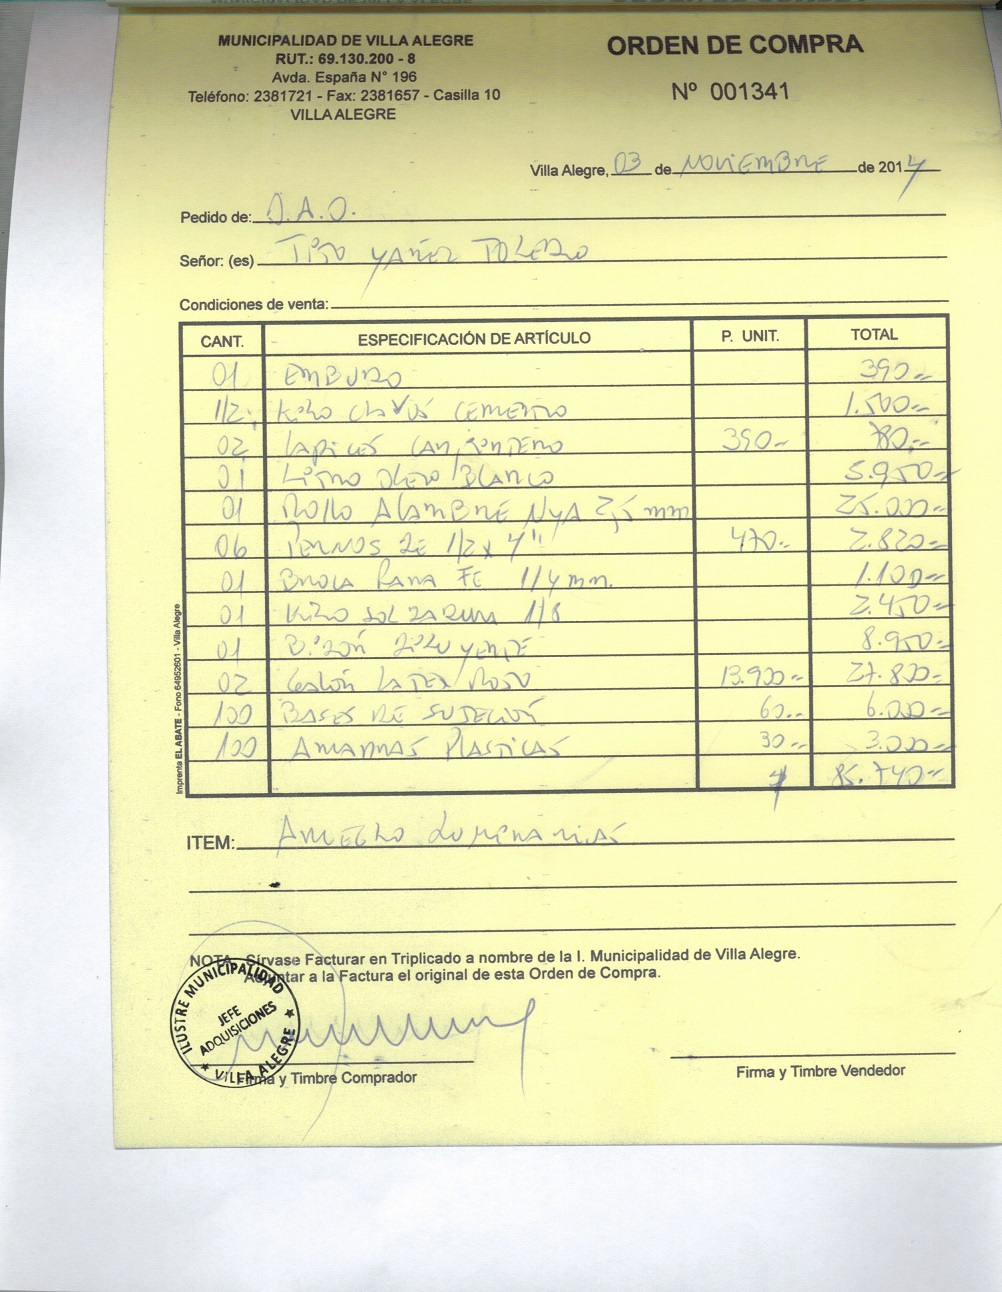 MUNICIPALIDAD DE VILLA ALEGRE
RUT.: 69.130.200 - 8
Avda. España N° 196
Teléfono: 2381721 - Fax: 2381657 - Casilla 10
VILLA ALEGRE
ORDEN DE COMPRA
Nº 001341
Villa Alegre, 03 de NOVIEMBRE de 2014
Pedido de: D.A.O.
Señor: (es) TITO YAÑEZ TOLEDO
Condiciones de venta:
CANT. ESPECIFICACIÓN DE ARTÍCULO P. UNIT. TOTAL
01 EMBUDO 390.-
1/2 KILO CLAVOS CEMENTO 1.500.-
02 LAPICES CARPINTERO 390.- 780.-
01 OLEO BLANCO 5.950.-
01 ROLLO ALAMBRE NYA 2,5 mm 25.000.-
06 PERNOS DE 1/2 x 4" 470.- 2.820.-
01 BROCA PARA FE 1/4 mm. 1.100.-
01 KILO SOLDADURA 1/8 2.450.-
01 BIDÓN DILUYENTE 8.950.-
02 GALÓN LATEX ROJO 13.900.- 27.800.-
100 BASES DE SUJECIÓN 60.- 6.000.-
100 AMARRAS PLASTICAS 30.- 3.000.-
85.740.-
Imprenta EL ABATE - Fono 64952601 - Villa Alegre
ITEM: ARREGLO LUMINARIAS
NOTA Sírvase Facturar en Triplicado a nombre de la I. Municipalidad de Villa Alegre.
Adjuntar a la Factura el original de esta Orden de Compra.
ILUSTRE MUNICIPALIDAD
JEFE
ADQUISICIONES
VILLA ALEGRE
Firma y Timbre Comprador
Firma y Timbre Vendedor